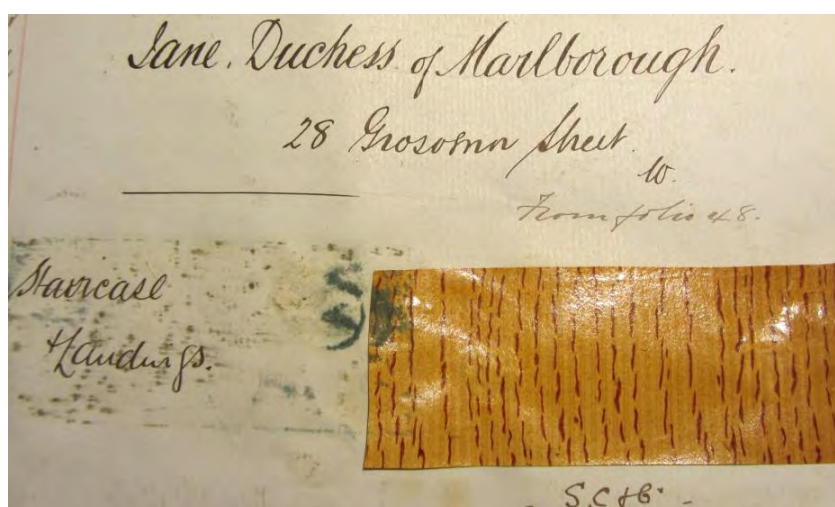 Jane. Duchess of Marlborough.
28 Grosvenor Street.
W.
From folio 48.
Staircase
& Landings.